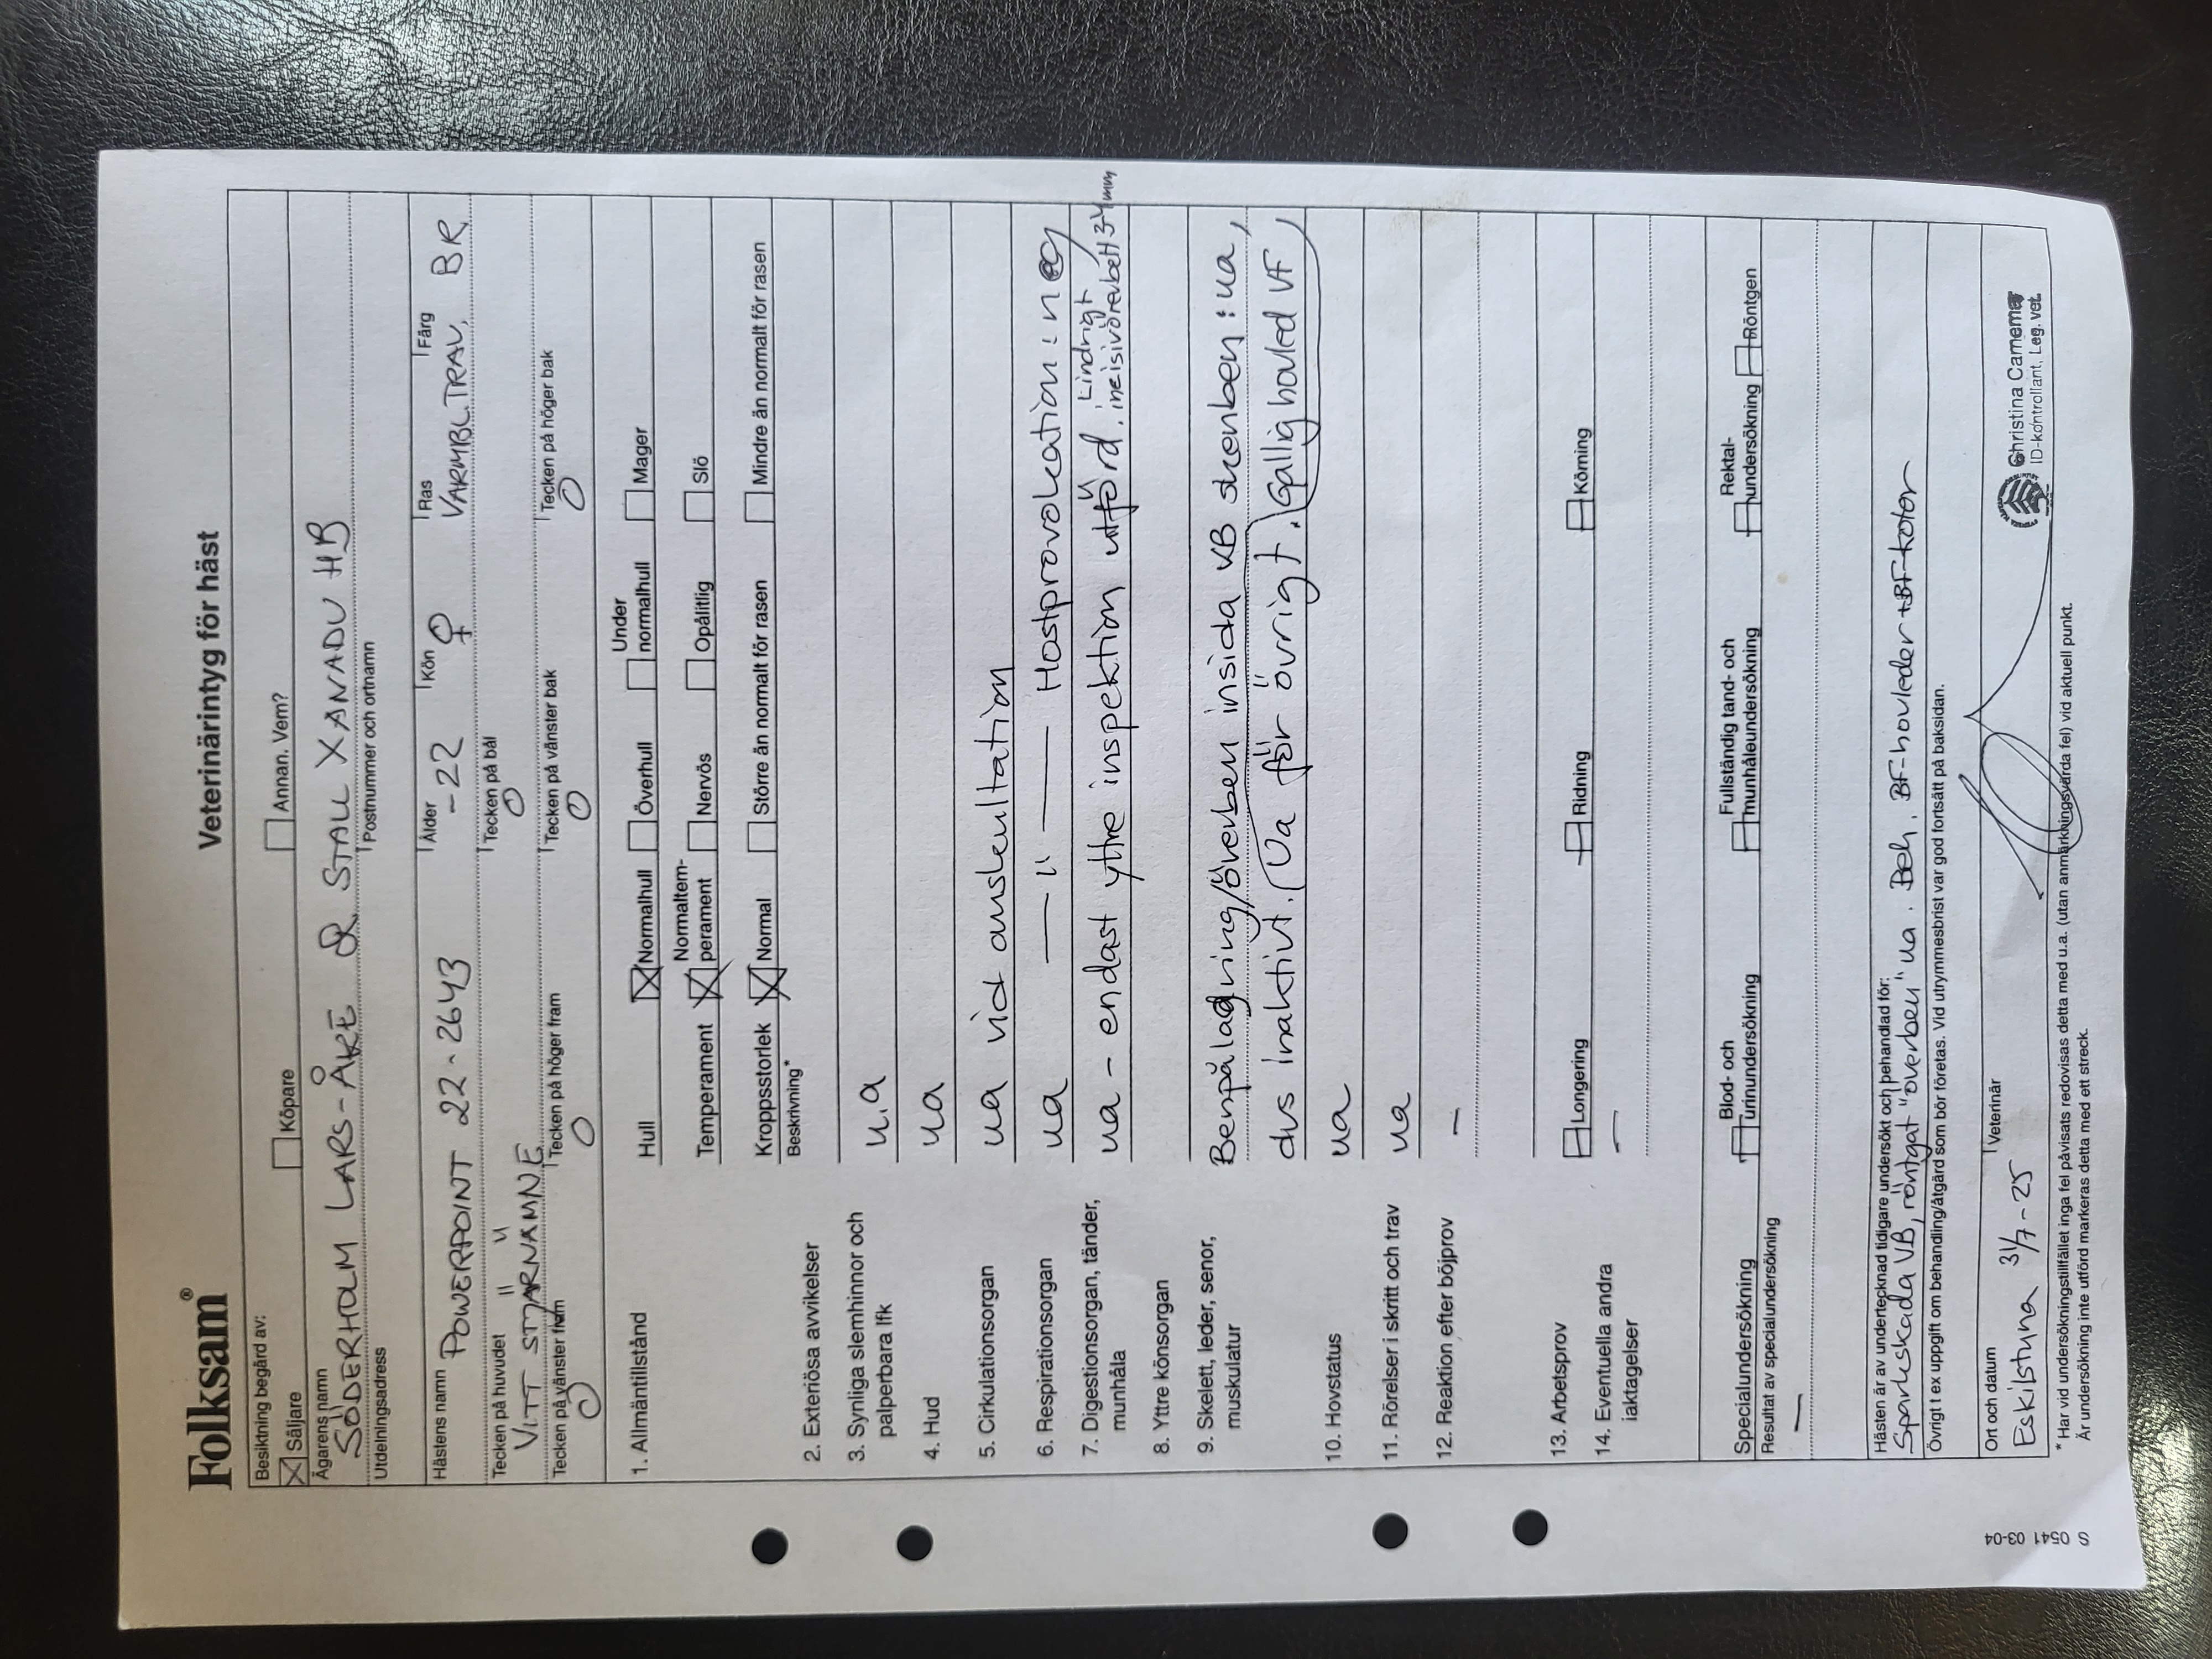 Folksam®
Veterinärintyg för häst
Besiktning begärd av:
Säljare Köpare Annan. Vem?
Ägarens namn
SÖDERHOLM LARS-ÅKE & STALL XANADU HB
Utdelningsadress Postnummer och ortnamn
Hästens namn Ålder Kön Ras Färg
POWERPOINT 22-2643 -22 ♀ VARMBL.TRAV. BR
Tecken på huvudet Tecken på bål
VITT STJÄRNÄMNE 0
Tecken på vänster fram Tecken på höger fram Tecken på vänster bak Tecken på höger bak
0 0 0 0
1. Allmäntillstånd Hull Normalhull Överhull Under normalhull Mager
Temperament Normaltemperament Nervös Opålitlig Slö
Kroppsstorlek Normal Större än normalt för rasen Mindre än normalt för rasen
Beskrivning*
2. Exteriösa avvikelser
3. Synliga slemhinnor och palperbara lfk u.a
4. Hud ua
5. Cirkulationsorgan ua vid auskultation
6. Respirationsorgan ua — " — Hostprovokation: neg
7. Digestionsorgan, tänder, munhåla ua - endast yttre inspektion utförd. Lindrigt incisivöverbett 3-4 mm
8. Yttre könsorgan
9. Skelett, leder, senor, muskulatur Benpålagring/överben insida VB skenben: ua,
dvs inaktivt. (Ua för övrigt.) Gallig hovled VF
10. Hovstatus ua
11. Rörelser i skritt och trav ua
12. Reaktion efter böjprov –
13. Arbetsprov Longering Ridning Körning
14. Eventuella andra iaktagelser –
Specialundersökning Blod- och urinundersökning Fullständig tand- och munhåleundersökning Rektalundersökning Röntgen
Resultat av specialundersökning
–
Hästen är av undertecknad tidigare undersökt och behandlad för:
Sparkskada VB, röntgat "överben" ua. Beh. BF-hovleder + BF-kotor
Övrigt t ex uppgift om behandling/åtgärd som bör företas. Vid utrymmesbrist var god fortsätt på baksidan.
Ort och datum Veterinär
Eskilstuna 31/7-25
Christina
ID-kontrollant, Leg. vet.
* Har vid undersökningstillfället inga fel påvisats redovisas detta med u.a. (utan anmärkningsvärda fel) vid aktuell punkt.
Är undersökning inte utförd markeras detta med ett streck.
S 0541 03-04